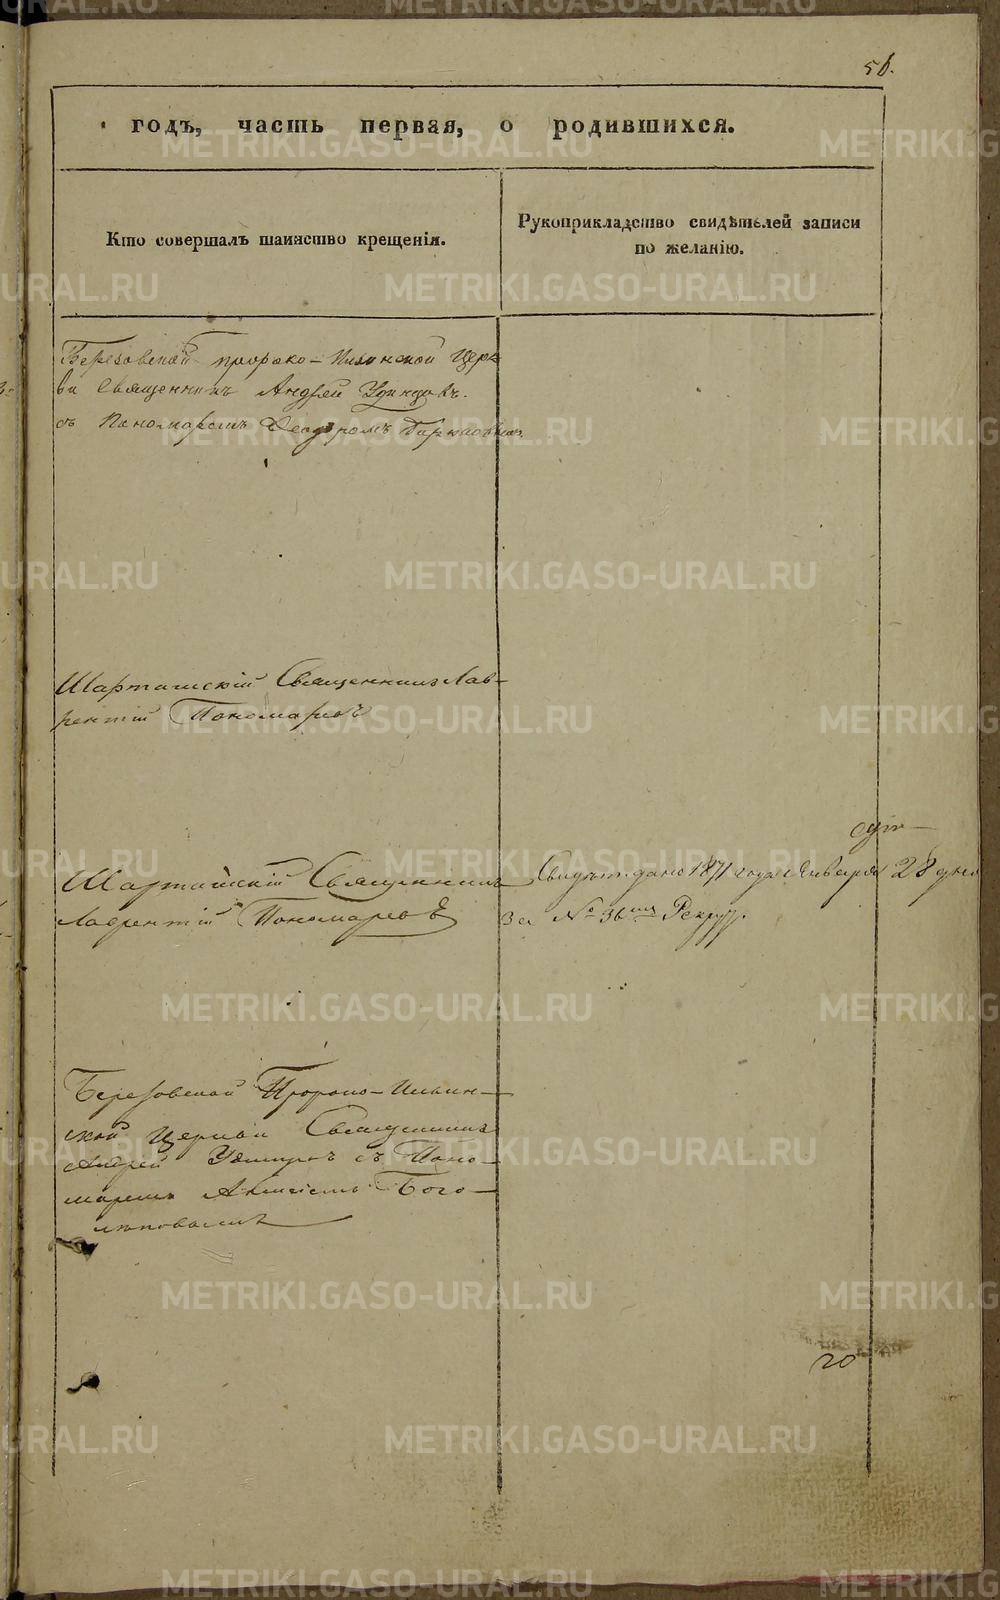 56.
годъ, часть первая, о родившихся.
Кто совершалъ таинство крещенія.
Рукоприкладство свидѣтелей записи
по желанію.
Березовской пророко-Илинской Церк
ви Священникъ Андрей Удинцовъ.
съ Пономаремъ Феодоромъ
Шарташскій Священникъ Лав-
рентій Пономаревъ
Шарташскій Священникъ
Лаврентій Пономаревъ
Свидѣт. дано 1871 года Января 28 дня
За № 36 Рекрут.
Березовской Пророко-Ильин-
ской Церкви Священникъ
Андрей Удинцовъ съ Поно-
маремъ Бого-
20
METRIKI.GASO-URAL.RU